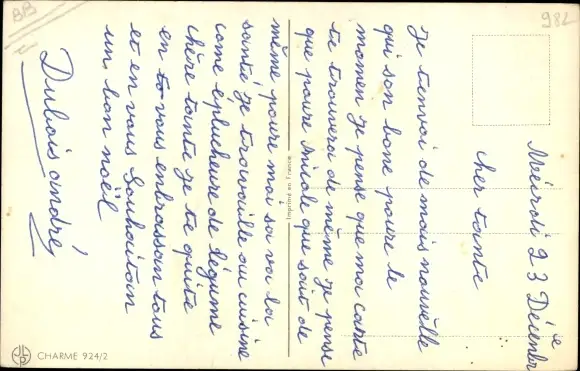 Meircdi 23 Décembre
cher tante
Je t'envoi de mais nouvelle
qui son bone poure le
momen je pense que ma carte
te trouvera de même je pense
que poure Nicole que soit de
même poure moi sa va la
santé je trovaille au cuisine
come éplucheure de légume
chère tante je te quite
en to vous enbrassan tous
et en vous Souhaitan
un bon noël
Dubois andré
Imprimé en France
CHARME 924/2
BB
982